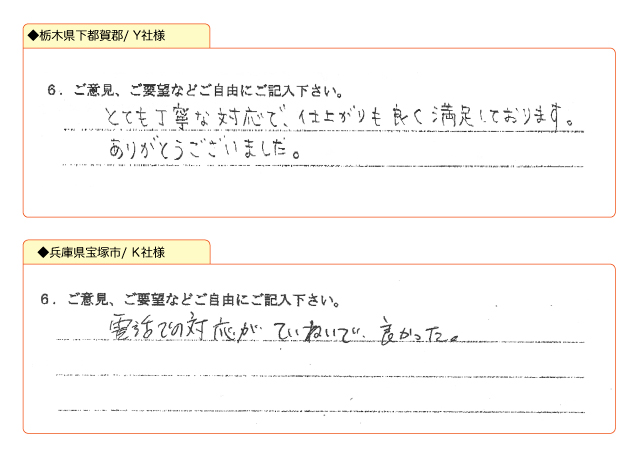 ◆栃木県下都賀郡/ Y社様
6. ご意見、ご要望などご自由にご記入下さい。
とても丁寧な対応で、仕上がりも良く満足しております。
ありがとうございました。
◆兵庫県宝塚市/ K社様
6. ご意見、ご要望などご自由にご記入下さい。
電話での対応がていねいで、良かった。